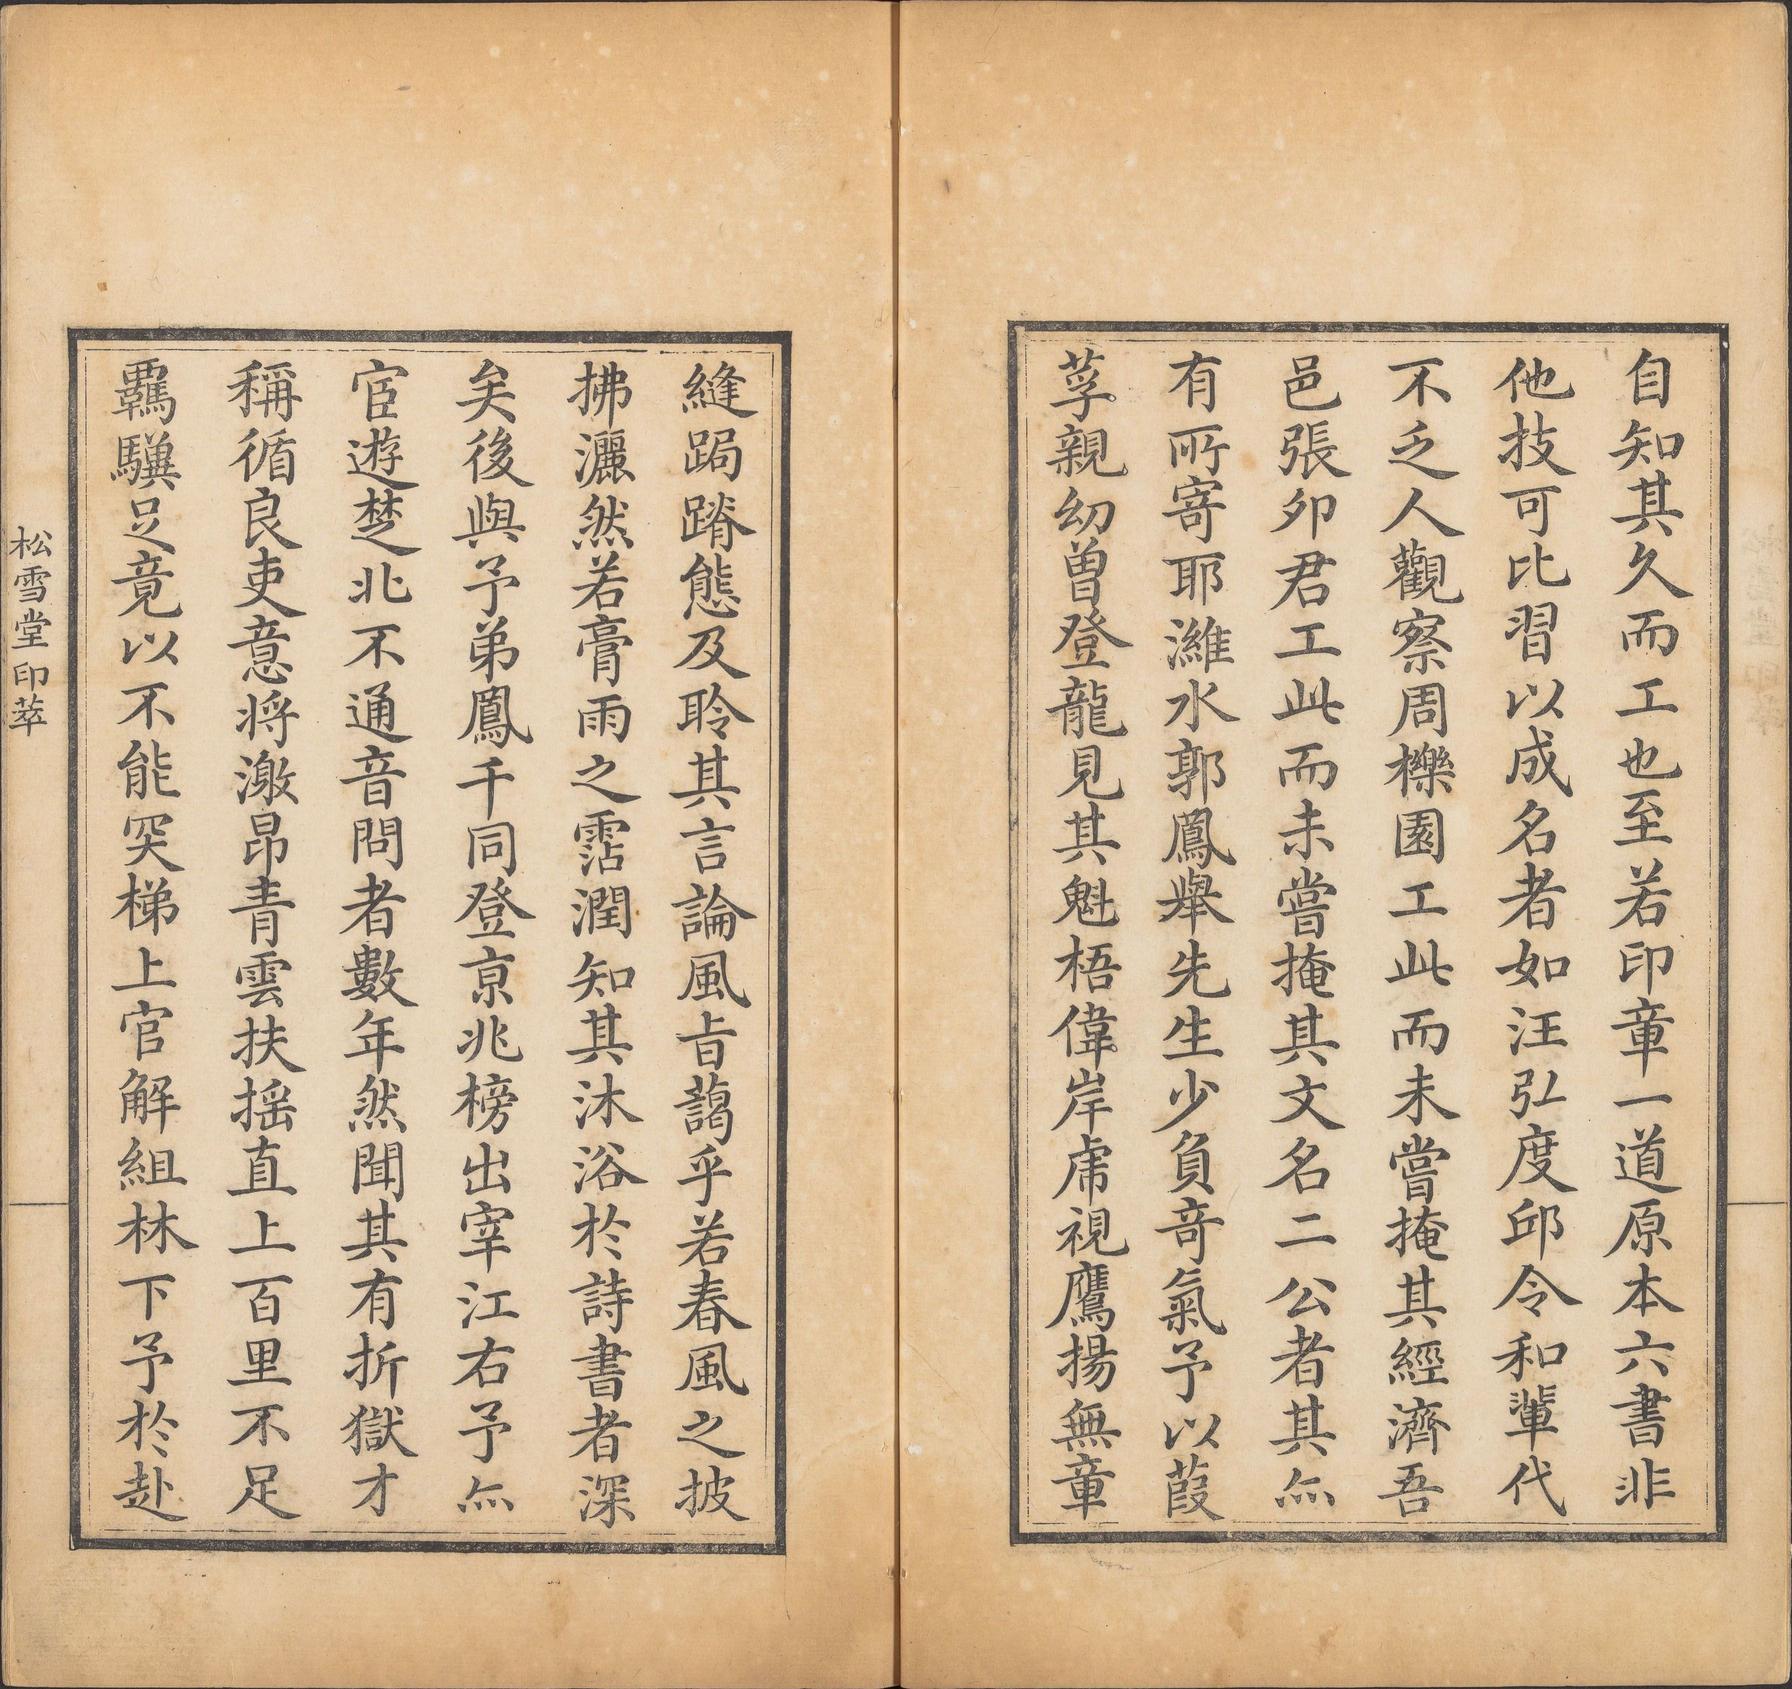 自知其久而工也至若印章一道原本六書非
他技可比習以成名者如汪弘度邱令和輩代
不乏人觀察周櫟園工此而未嘗掩其經濟吾
邑張卯君工此而未嘗掩其文名二公者其亦
有所寄耶濰水郭鳳舉先生少負奇氣予以葭
莩親幼曾登龍見其魁梧偉岸虎視鷹揚無章
縫跼蹐態及聆其言論風旨藹乎若春風之披
拂灑然若膏雨之霑潤知其沐浴於詩書者深
矣後與予弟鳳千同登京兆榜出宰江右予亦
宦遊楚北不通音問者數年然聞其有折獄才
稱循良吏意將激昂青雲扶搖直上百里不足
羈驥足竟以不能突梯上官解組林下予於赴
松雪堂印萃